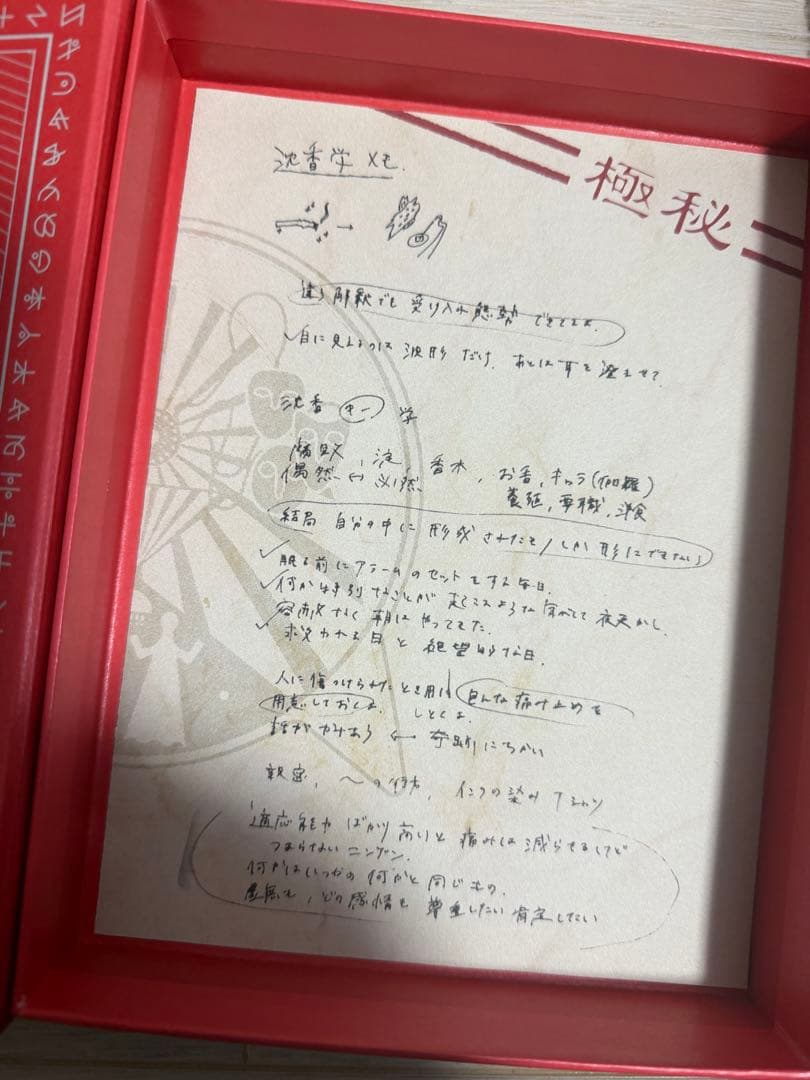 極秘
沈香学 メモ
違う解釈でも 受け入れ態勢 できてるよ.
目に見えるのは 波形 だけ. あとは耳を澄ませて
沈香 キー 学
偶然 ↔ 必然
沈, 香木, お香, キャラ(伽羅)
養殖, 専職, 洋食
結局 自分の中に 形成 されたものしか 形にできない
眠る前にアラームのセットをする毎日.
何か特別なことが 起こるような 気がして 夜更かし.
容赦なく 朝は やってきた.
求められる日と 絶望的な日.
人に傷つけられたとき用に 色んな痛み止めを
用意しておくよ. しとくよ.
話がかみあう ↔ 奇跡にちかい
親密, 〜の行方, インクの染み Tシャツ
適応能力 ばかり高いと 痛みは 減らせるけど
つまらない ニンゲン.
何かはいつかの 何かと 同じもの.
虚無も, どの感情も 尊重したい 肯定したい